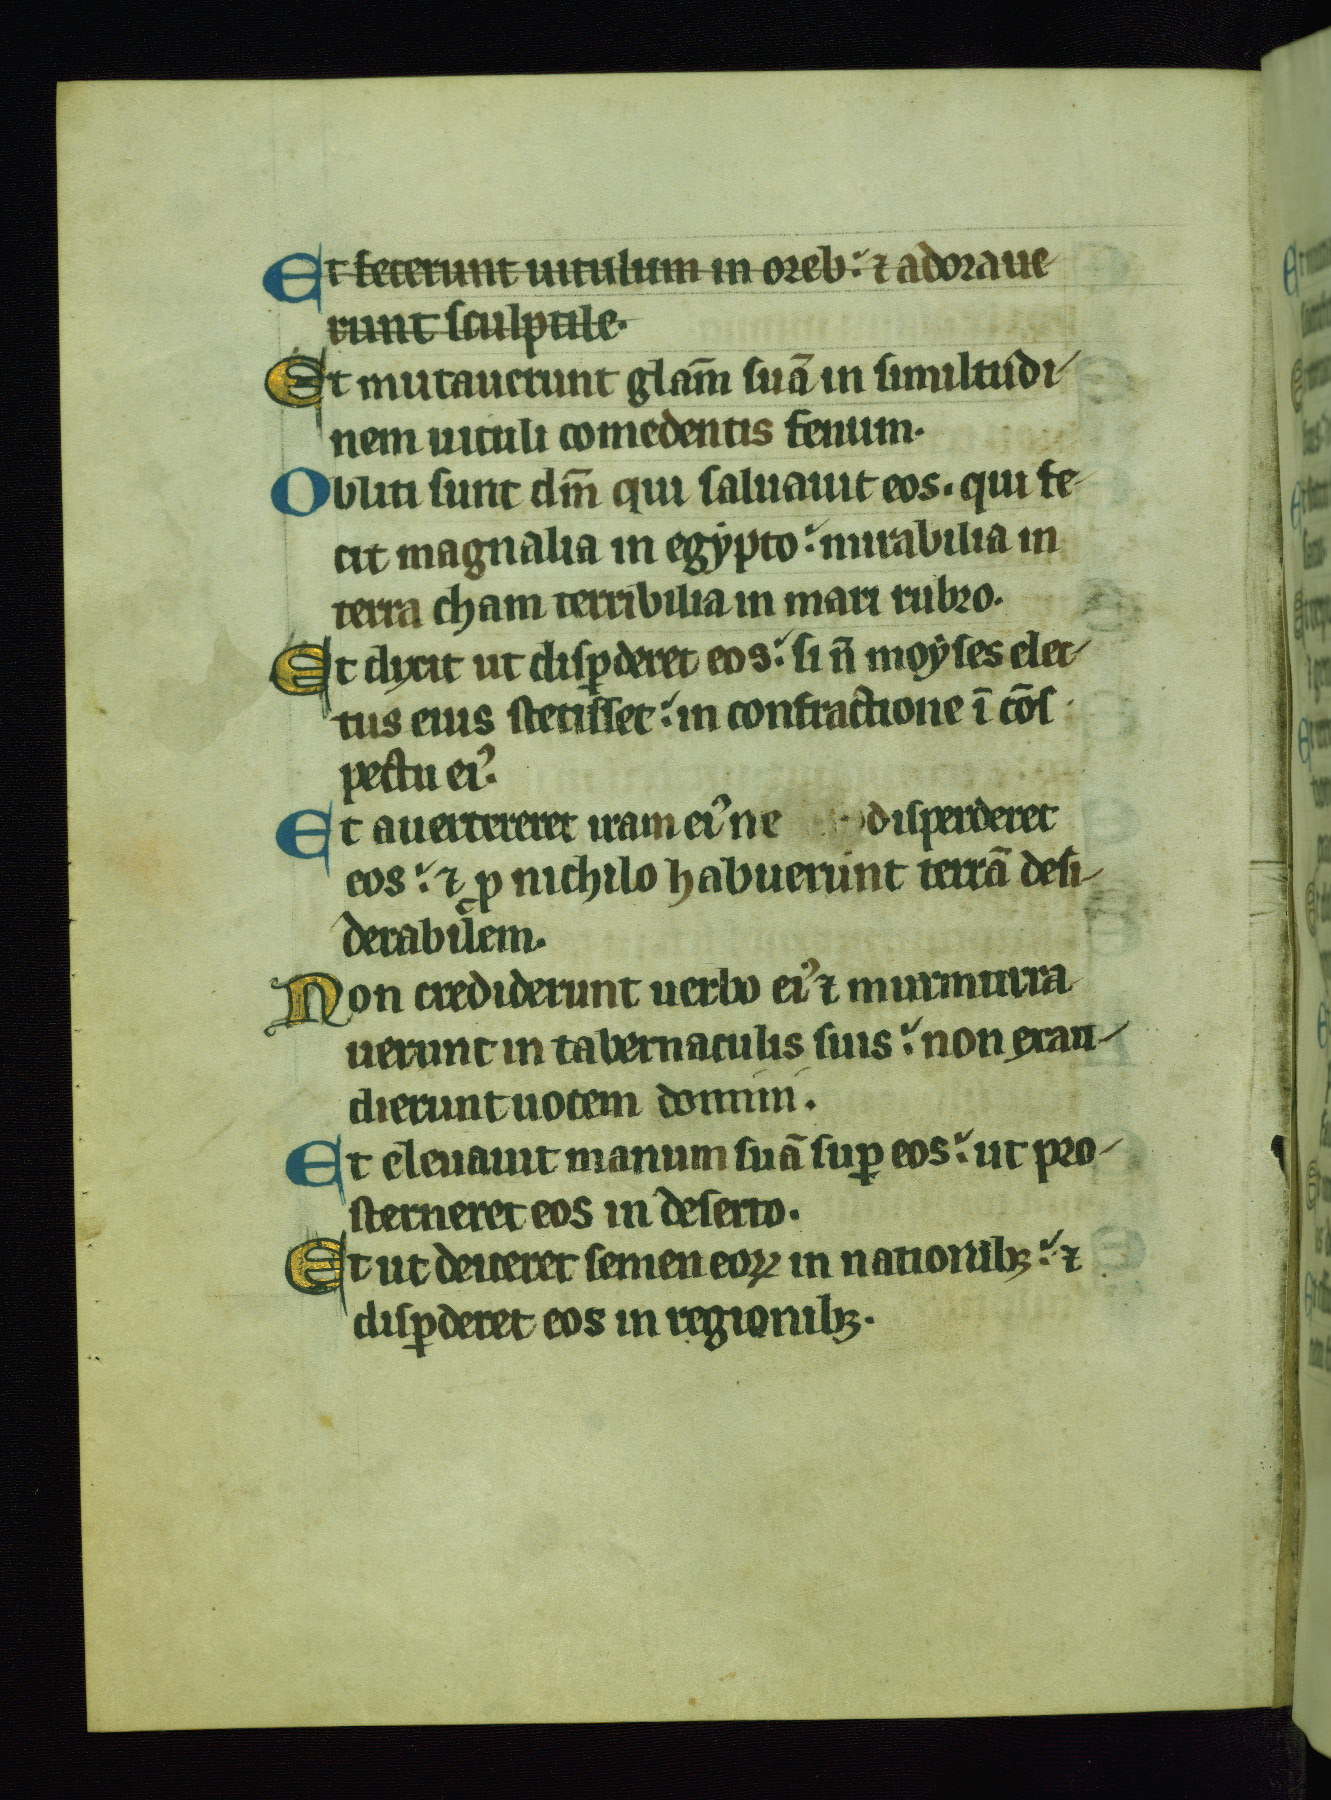 Et fecerunt uitulum in oreb: ⁊ adoraue
runt sculptile.
Et mutauerunt glam̄ suā in similitudi
nem uituli comedentis fenum.
Obliti sunt dm̄ qui saluauit eos. qui fe
cit magnalia in egẏpto: mirabilia in
terra cham terribilia in mari rubro.
Et dixit ut disꝑderet eos: si n̄ moẏses elec
tus eius stetisset: in confractione ī cōs
pectu eiꝰ.
Et auertereret iram eiꝰ ne disperderet
eos: ⁊ ꝓ nichilo habuerunt terrā desi
derabilem.
Non crediderunt uerbo eiꝰ ⁊ murmura
uerunt in tabernaculis suis: non exau
dierunt uocem domini.
Et eleuauit manum suā suꝑ eos: ut pro
sterneret eos in deserto.
Et ut deiceret semen eoꝝ in nationibꝫ: ⁊
disꝑderet eos in regionibꝫ.